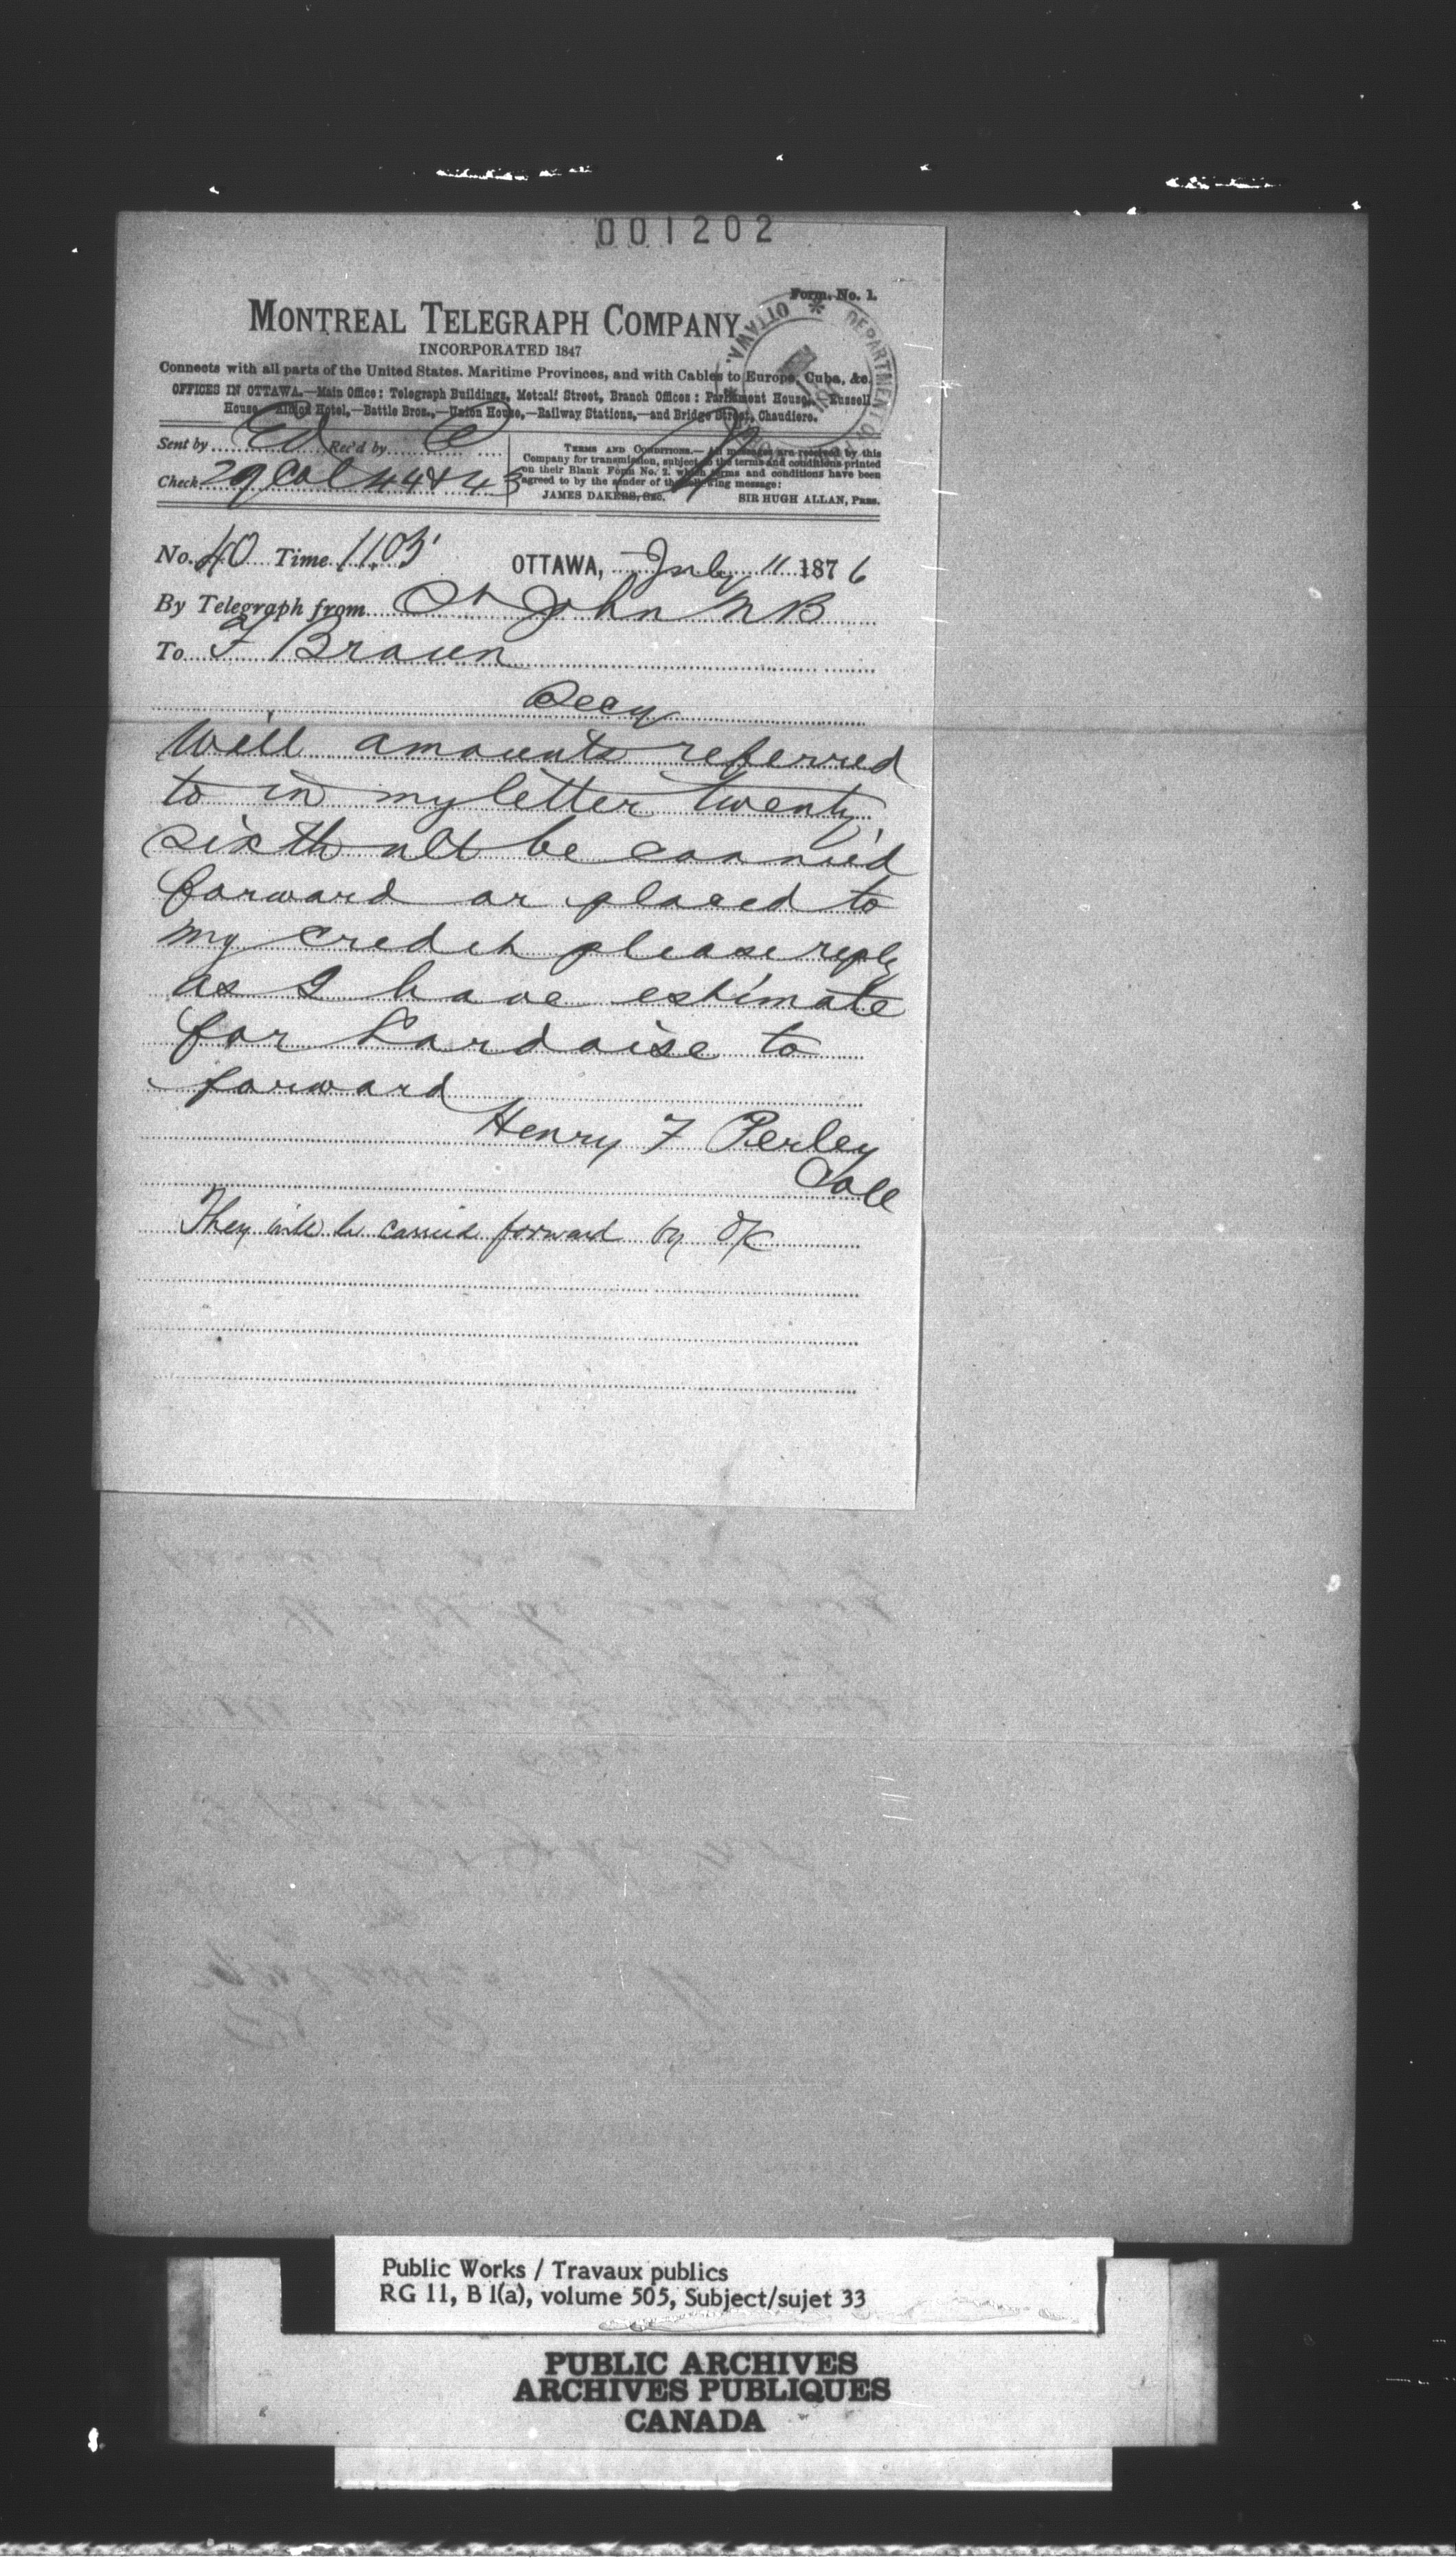 001202
Form. No. 1.
MONTREAL TELEGRAPH COMPANY
INCORPORATED 1847
Connects with all parts of the United States. Maritime Provinces, and with Cables to Europe, Cuba, &c.
OFFICES IN OTTAWA.—Main Office: Telegraph Buildings, Metcalf Street, Branch Offices: Parliament House,—Russell
House,—Albion Hotel,—Battle Bros.,—Union House,—Railway Stations,—and Bridge Street, Chaudiere.
DEPARTMENT OF OTTAWA.
Sent by Rec'd by
Check 29 Col 44 & 43
TERMS AND CONDITIONS.—All messages are received by this
Company for transmission, subject to the terms and conditions printed
on their Blank Form No. 2. which terms and conditions have been
agreed to by the sender of the following message:
JAMES DAKERS, Sec. SIR HUGH ALLAN, Pres.
No. 40 Time 11.05 OTTAWA, July 11 1876
By Telegraph from St John NB
To F Braun
Secy
Will amounts referred
to in my letter twenty
sixth ult be carried
forward or placed to
my credit please reply
as I have estimate
for Lardoise to
forward
Henry F Perley
Coll
They will be carried forward by
Public Works / Travaux publics
RG 11, B 1(a), volume 505, Subject/sujet 33
PUBLIC ARCHIVES
ARCHIVES PUBLIQUES
CANADA